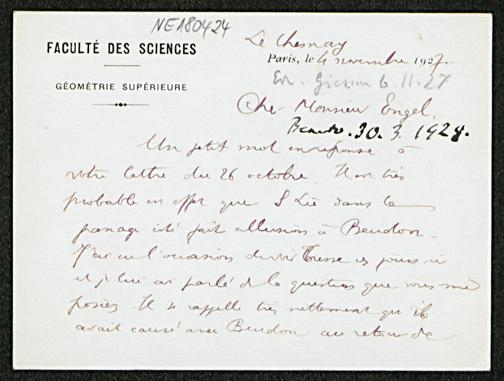 NE180424
FACULTÉ DES SCIENCES
GÉOMÉTRIE SUPÉRIEURE
Le Chesnay
Paris, le 4 novembre 1927.
6.11.27
Cher Monsieur Engel,
30.3.1928.
Un petit mot en réponse à
votre lettre du 26 octobre. Il est très
probable en effet que S Lie dans le
passage cité fait allusion à Beudon.
J'ai eu l'occasion de voir Tresse ces jours ci
et je lui ai parlé de la question que vous me
posiez Il se rappelle très nettement qu'il
avait causé avec Beudon au retour de